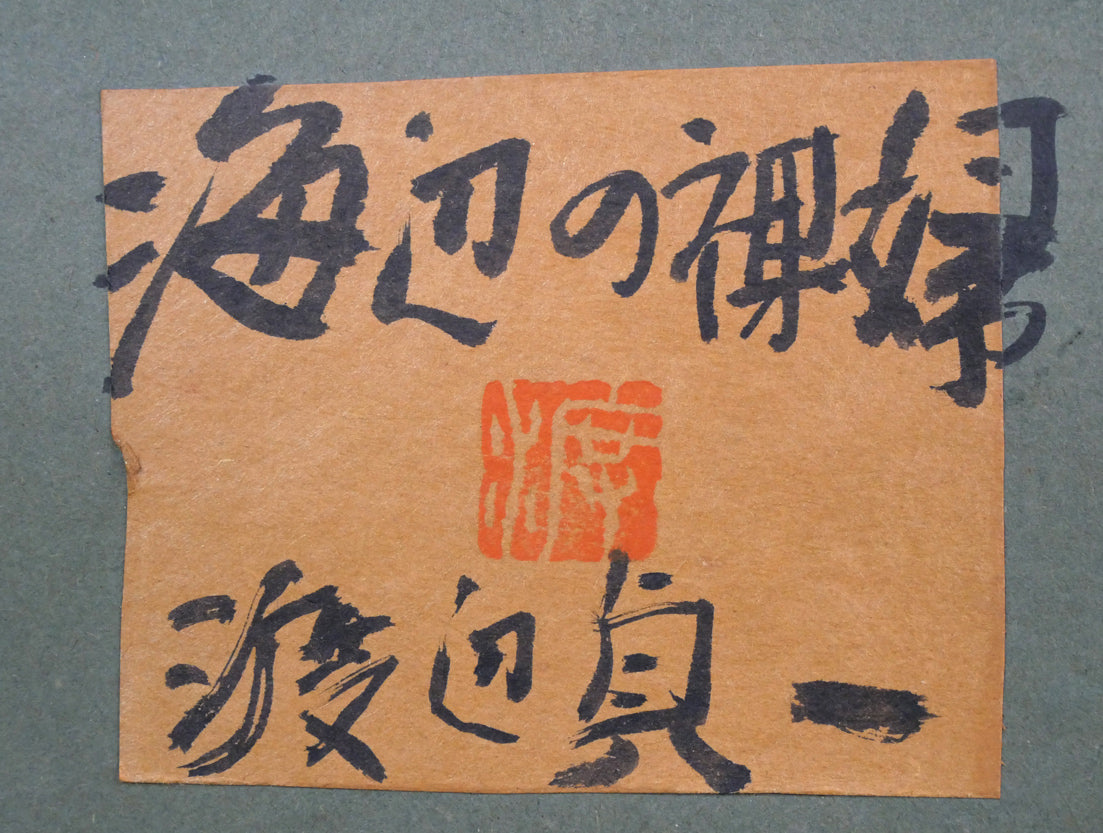 海辺の裸婦
渡辺貞一